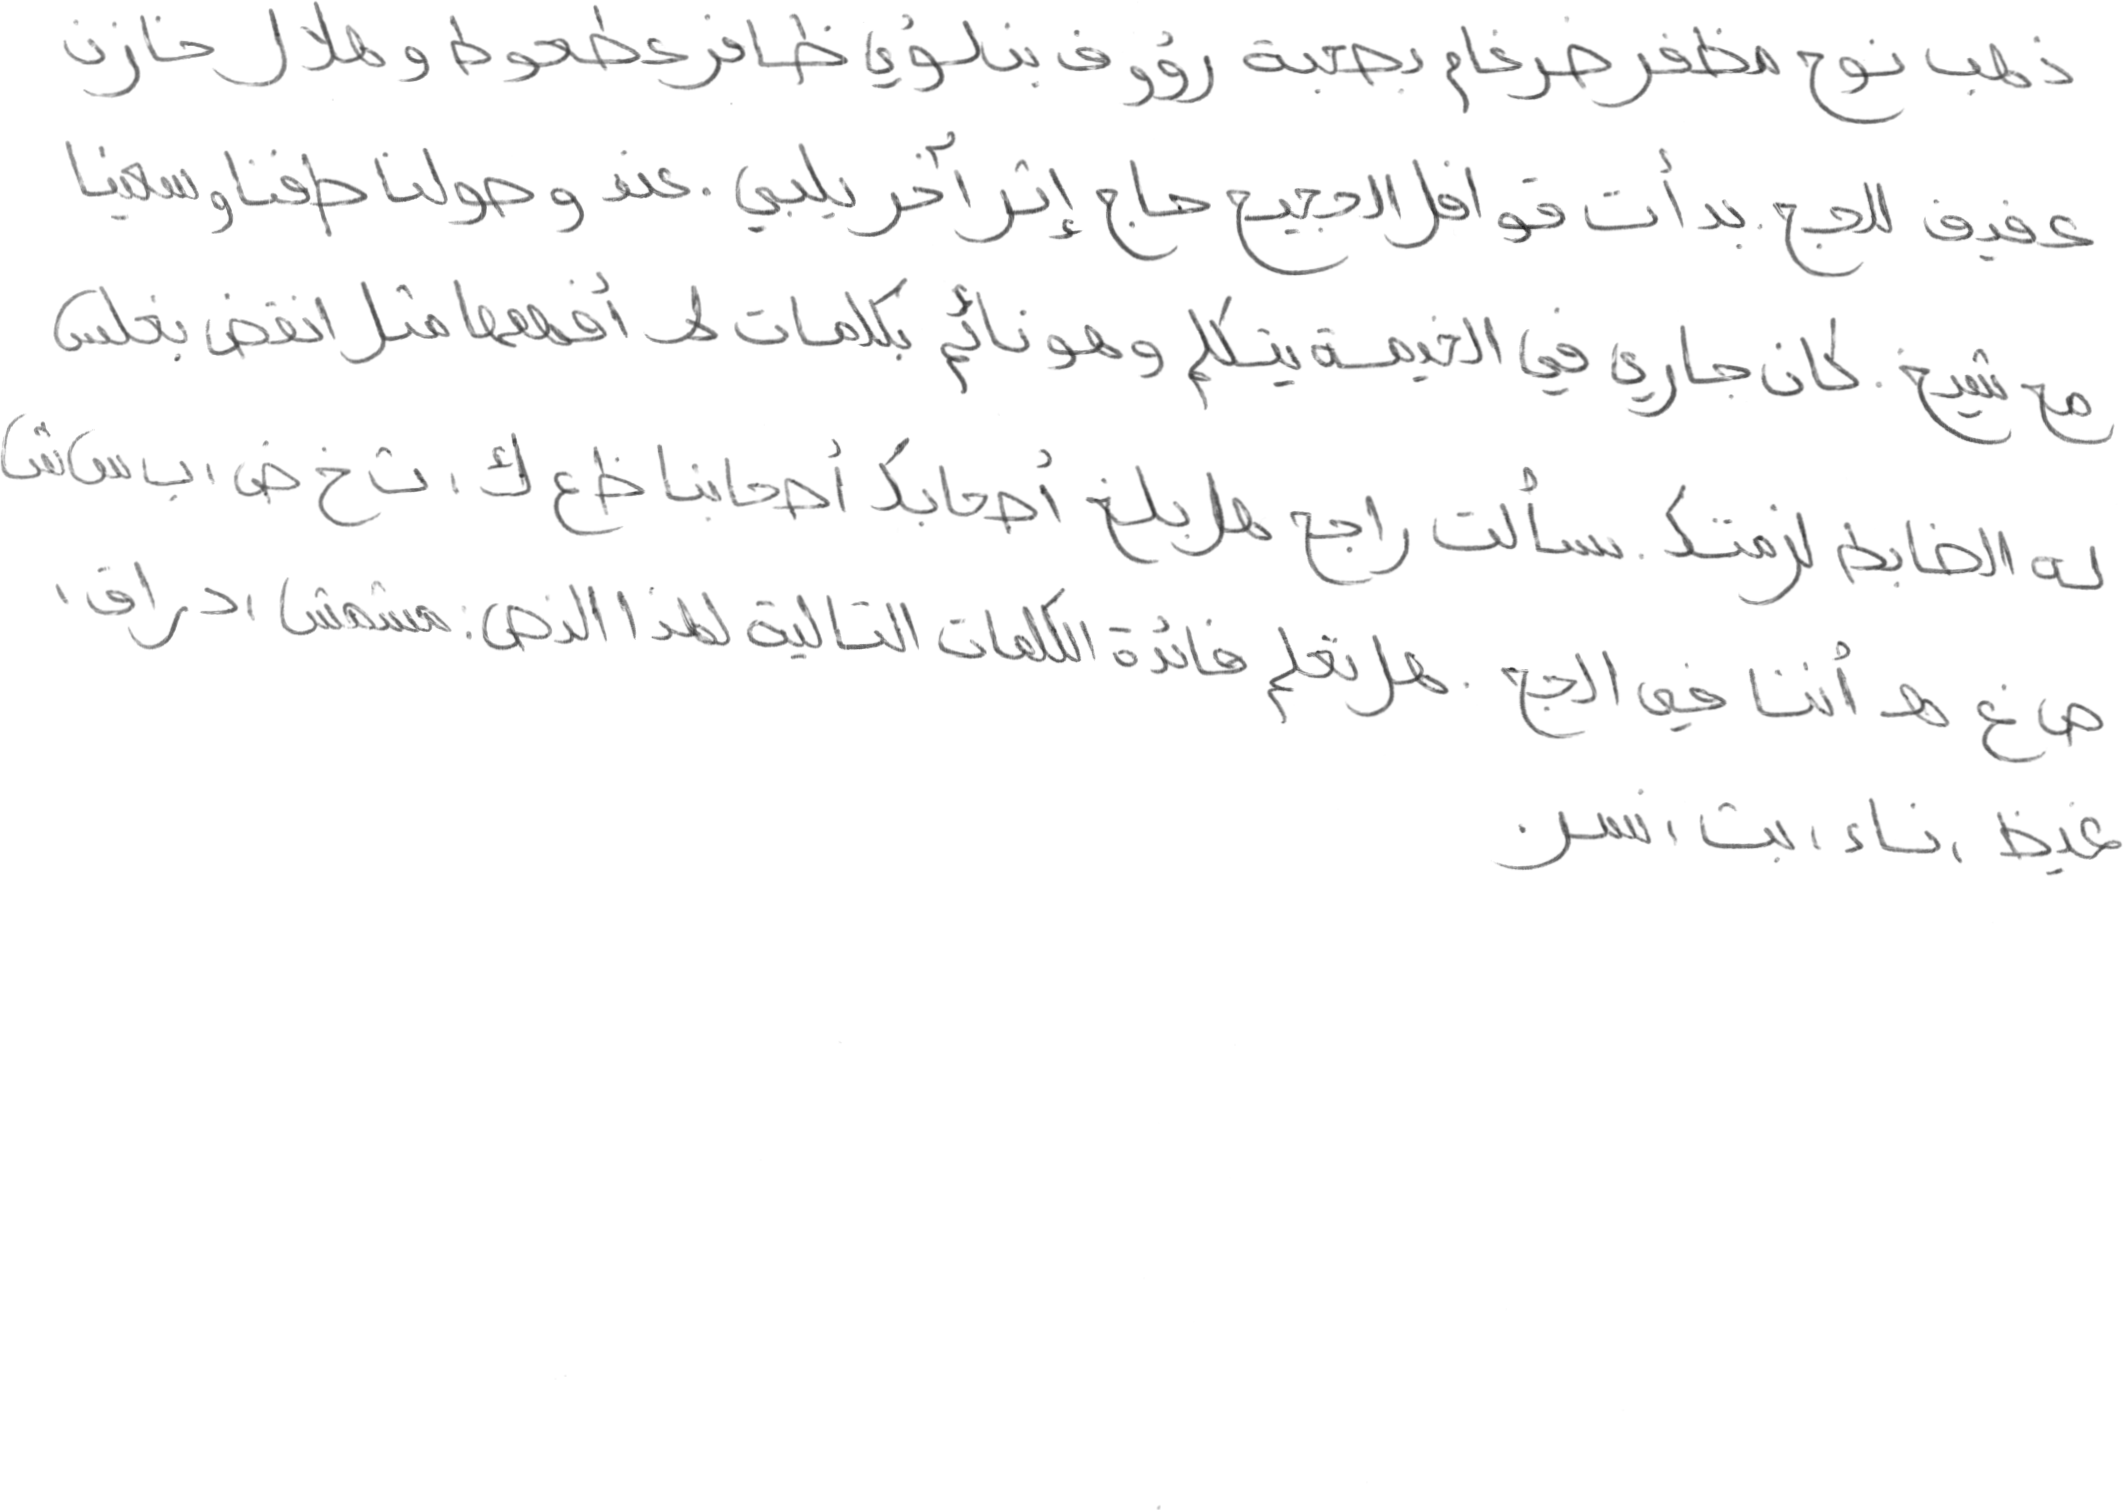 ذهب نوح مظفر ضرغام بصحبة رؤوف بن لؤي ظافر عطعوط وهلال خازن
عفيف للحج. بدأت قوافل الحجيج حاج إثر آخر يلبي. عند وصولنا طفنا وسعينا
مع شيخ. كان جاري في الخيمة يتكلم وهو نائم بكلمات لم أفهمها مثل انقض بغلس
له الضابط لزمتك. سألت راجح هل بلغ أصحابك أصحابنا ظ ع ك، ث خ ض، ب س ش
ص غ هـ أننا في الحج. هل تعلم فائدة الكلمات التالية لهذا النص: مشمش، دراق،
غيظ، ناء، بث، نسر.